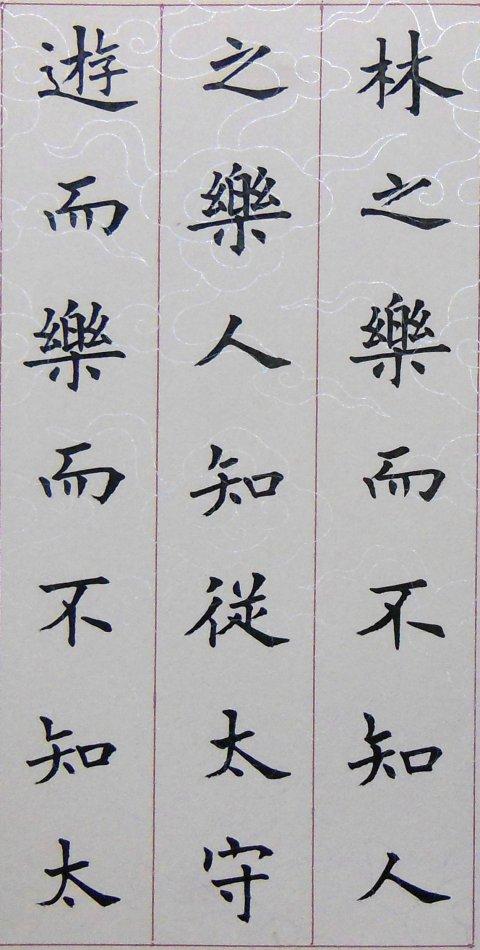 林之樂而不知人
之樂人知從太守
遊而樂而不知太